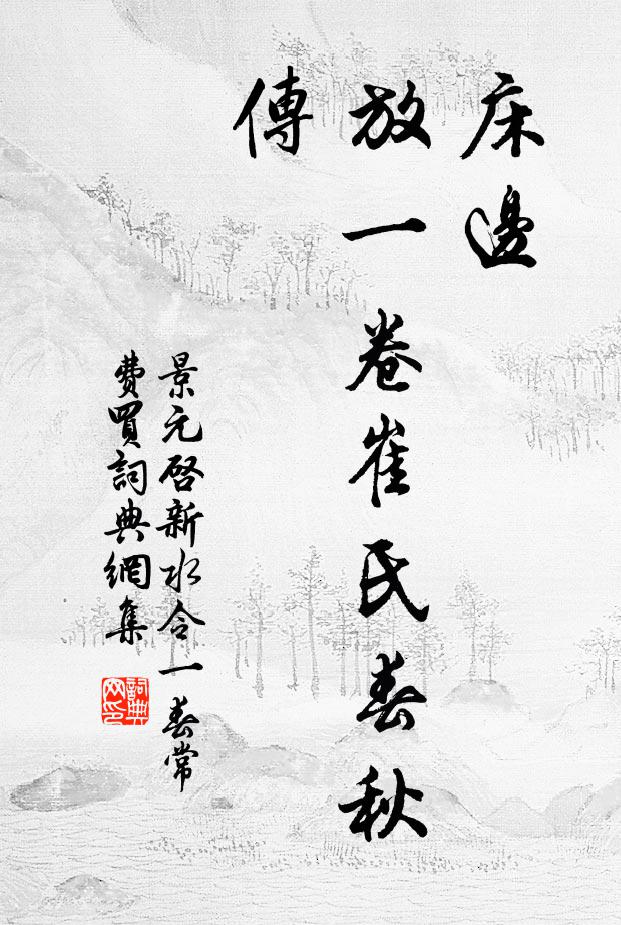 床邊
放一卷崔氏春秋
傳
景元啓新水令一春常
費買詞典網集
詞典
网印